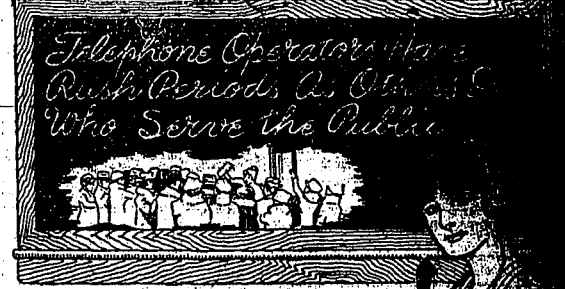 Telephone Operators Have
Rush Periods As Others Do
Who Serve the Public